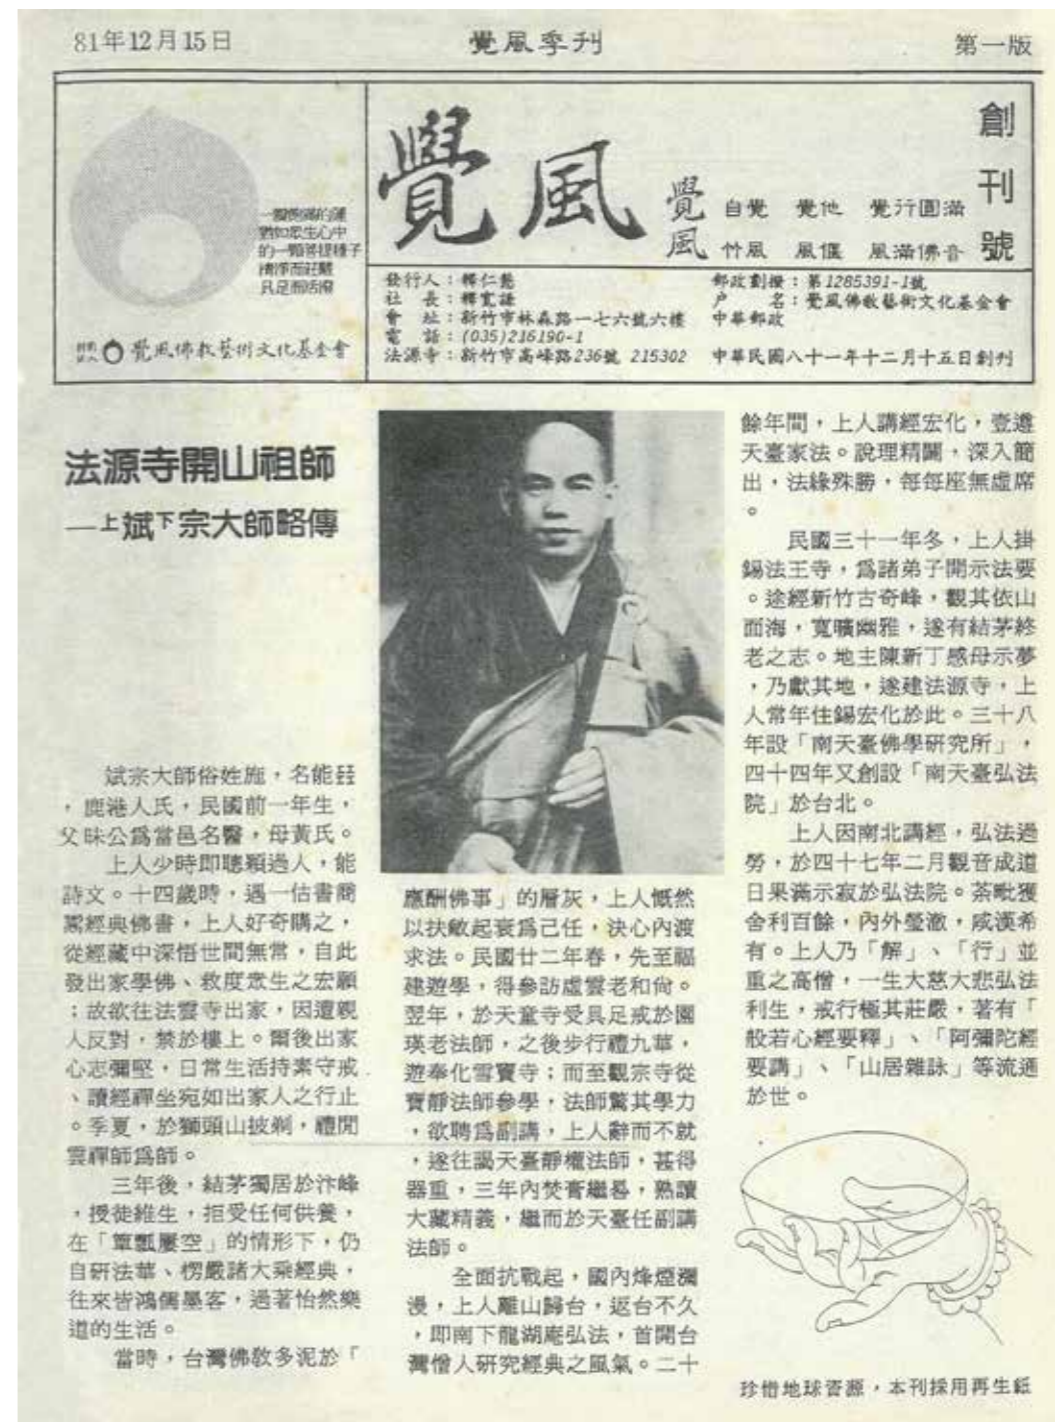 81年12月15日
覺風季刊
第一版
一顆飽滿的蓮
猶如眾生心中
的一顆菩提種子
清淨而莊嚴
具足而活潑
財團法人
覺風佛教藝術文化基金會
覺風
覺風
自覺 覺他 覺行圓滿
竹風 風偃 風滿佛音
創刊號
發行人：釋仁慧
社 長：釋寬謙
會 址：新竹市林森路一七六號六樓
電 話：(035)216190-1
法源寺：新竹市高峰路236號 215302
郵政劃撥：第1285391-1號
户 名：覺風佛教藝術文化基金會
中華郵政
中華民國八十一年十二月十五日創刊
法源寺開山祖師
—上斌下宗大師略傳
斌宗大師俗姓施，名能
，鹿港人氏，民國前一年生，
父昧公爲當邑名醫，母黃氏。
上人少時即聰穎過人，能
詩文。十四歲時，遇一估書商
鬻經典佛書，上人好奇購之，
從經藏中深悟世間無常，自此
發出家學佛、救度眾生之宏願
；故欲往法雲寺出家，因遭親
人反對，禁於樓上。爾後出家
心志彌堅，日常生活持素守戒
、讀經禪坐宛如出家人之行止
。季夏，於獅頭山披剃，禮閒
雲禪師爲師。
三年後，結茅獨居於汴峰
，授徒維生，拒受任何供養，
在「簞瓢屢空」的情形下，仍
自研法華、楞嚴諸大乘經典，
往來皆鴻儒墨客，過著怡然樂
道的生活。
當時，台灣佛教多泥於「
應酬佛事」的層灰，上人慨然
以扶敝起衰爲己任，決心內渡
求法。民國廿二年春，先至福
建遊學，得參訪虛雲老和尚。
翌年，於天童寺受具足戒於圓
瑛老法師，之後步行禮九華，
遊奉化雪竇寺；而至觀宗寺從
寶靜法師參學，法師驚其學力
，欲聘爲副講，上人辭而不就
，遂往謁天臺靜權法師，甚得
器重，三年內焚膏繼晷，熟讀
大藏精義，繼而於天臺任副講
法師。
全面抗戰起，國內烽煙瀰
漫，上人離山歸台，返台不久
，即南下龍湖庵弘法，首開台
灣僧人研究經典之風氣。二十
餘年間，上人講經宏化，壹遵
天臺家法。說理精闢，深入簡
出，法緣殊勝，每每座無虛席
。
民國三十一年冬，上人掛
錫法王寺，爲諸弟子開示法要
。途經新竹古奇峰，觀其依山
面海，寬曠幽雅，遂有結茅終
老之志。地主陳新丁感母示夢
，乃獻其地，遂建法源寺，上
人常年住錫宏化於此。三十八
年設「南天臺佛學研究所」，
四十四年又創設「南天臺弘法
院」於台北。
上人因南北講經，弘法過
勞，於四十七年二月觀音成道
日果滿示寂於弘法院。荼毗獲
舍利百餘，內外瑩澈，咸漢希
有。上人乃「解」、「行」並
重之高僧，一生大慈大悲弘法
利生，戒行極其莊嚴，著有「
般若心經要釋」、「阿彌陀經
要講」、「山居雜詠」等流通
於世。
珍惜地球資源，本刊採用再生紙